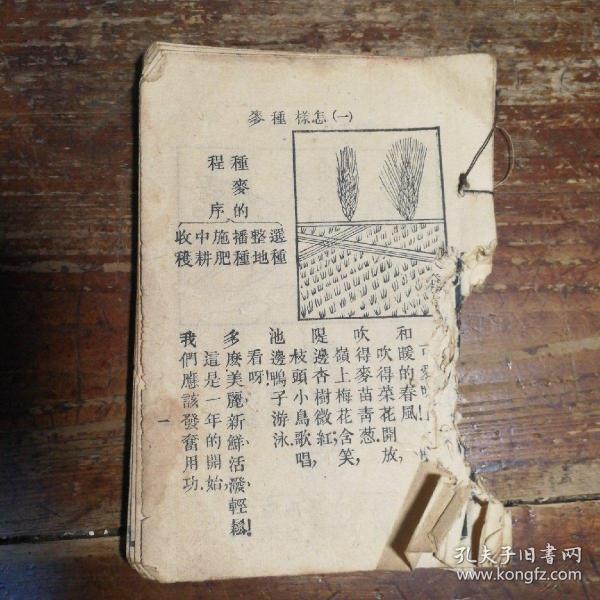 (一)怎樣種麥
種麥的
程序
選種
整地
播種
施肥
中耕
收穫
和暖的春風！
吹得菜花開放，
吹得麥苗青葱。
嶺上梅花含笑，
隄邊杏樹微紅；
枝頭小鳥歌唱，
池邊鴨子游泳。
看呀！
多麽美麗、新鮮、活潑、輕鬆！
這是一年的開始，
我們應該發奮用功。
一
孔夫子旧书网
www.kongfz.com